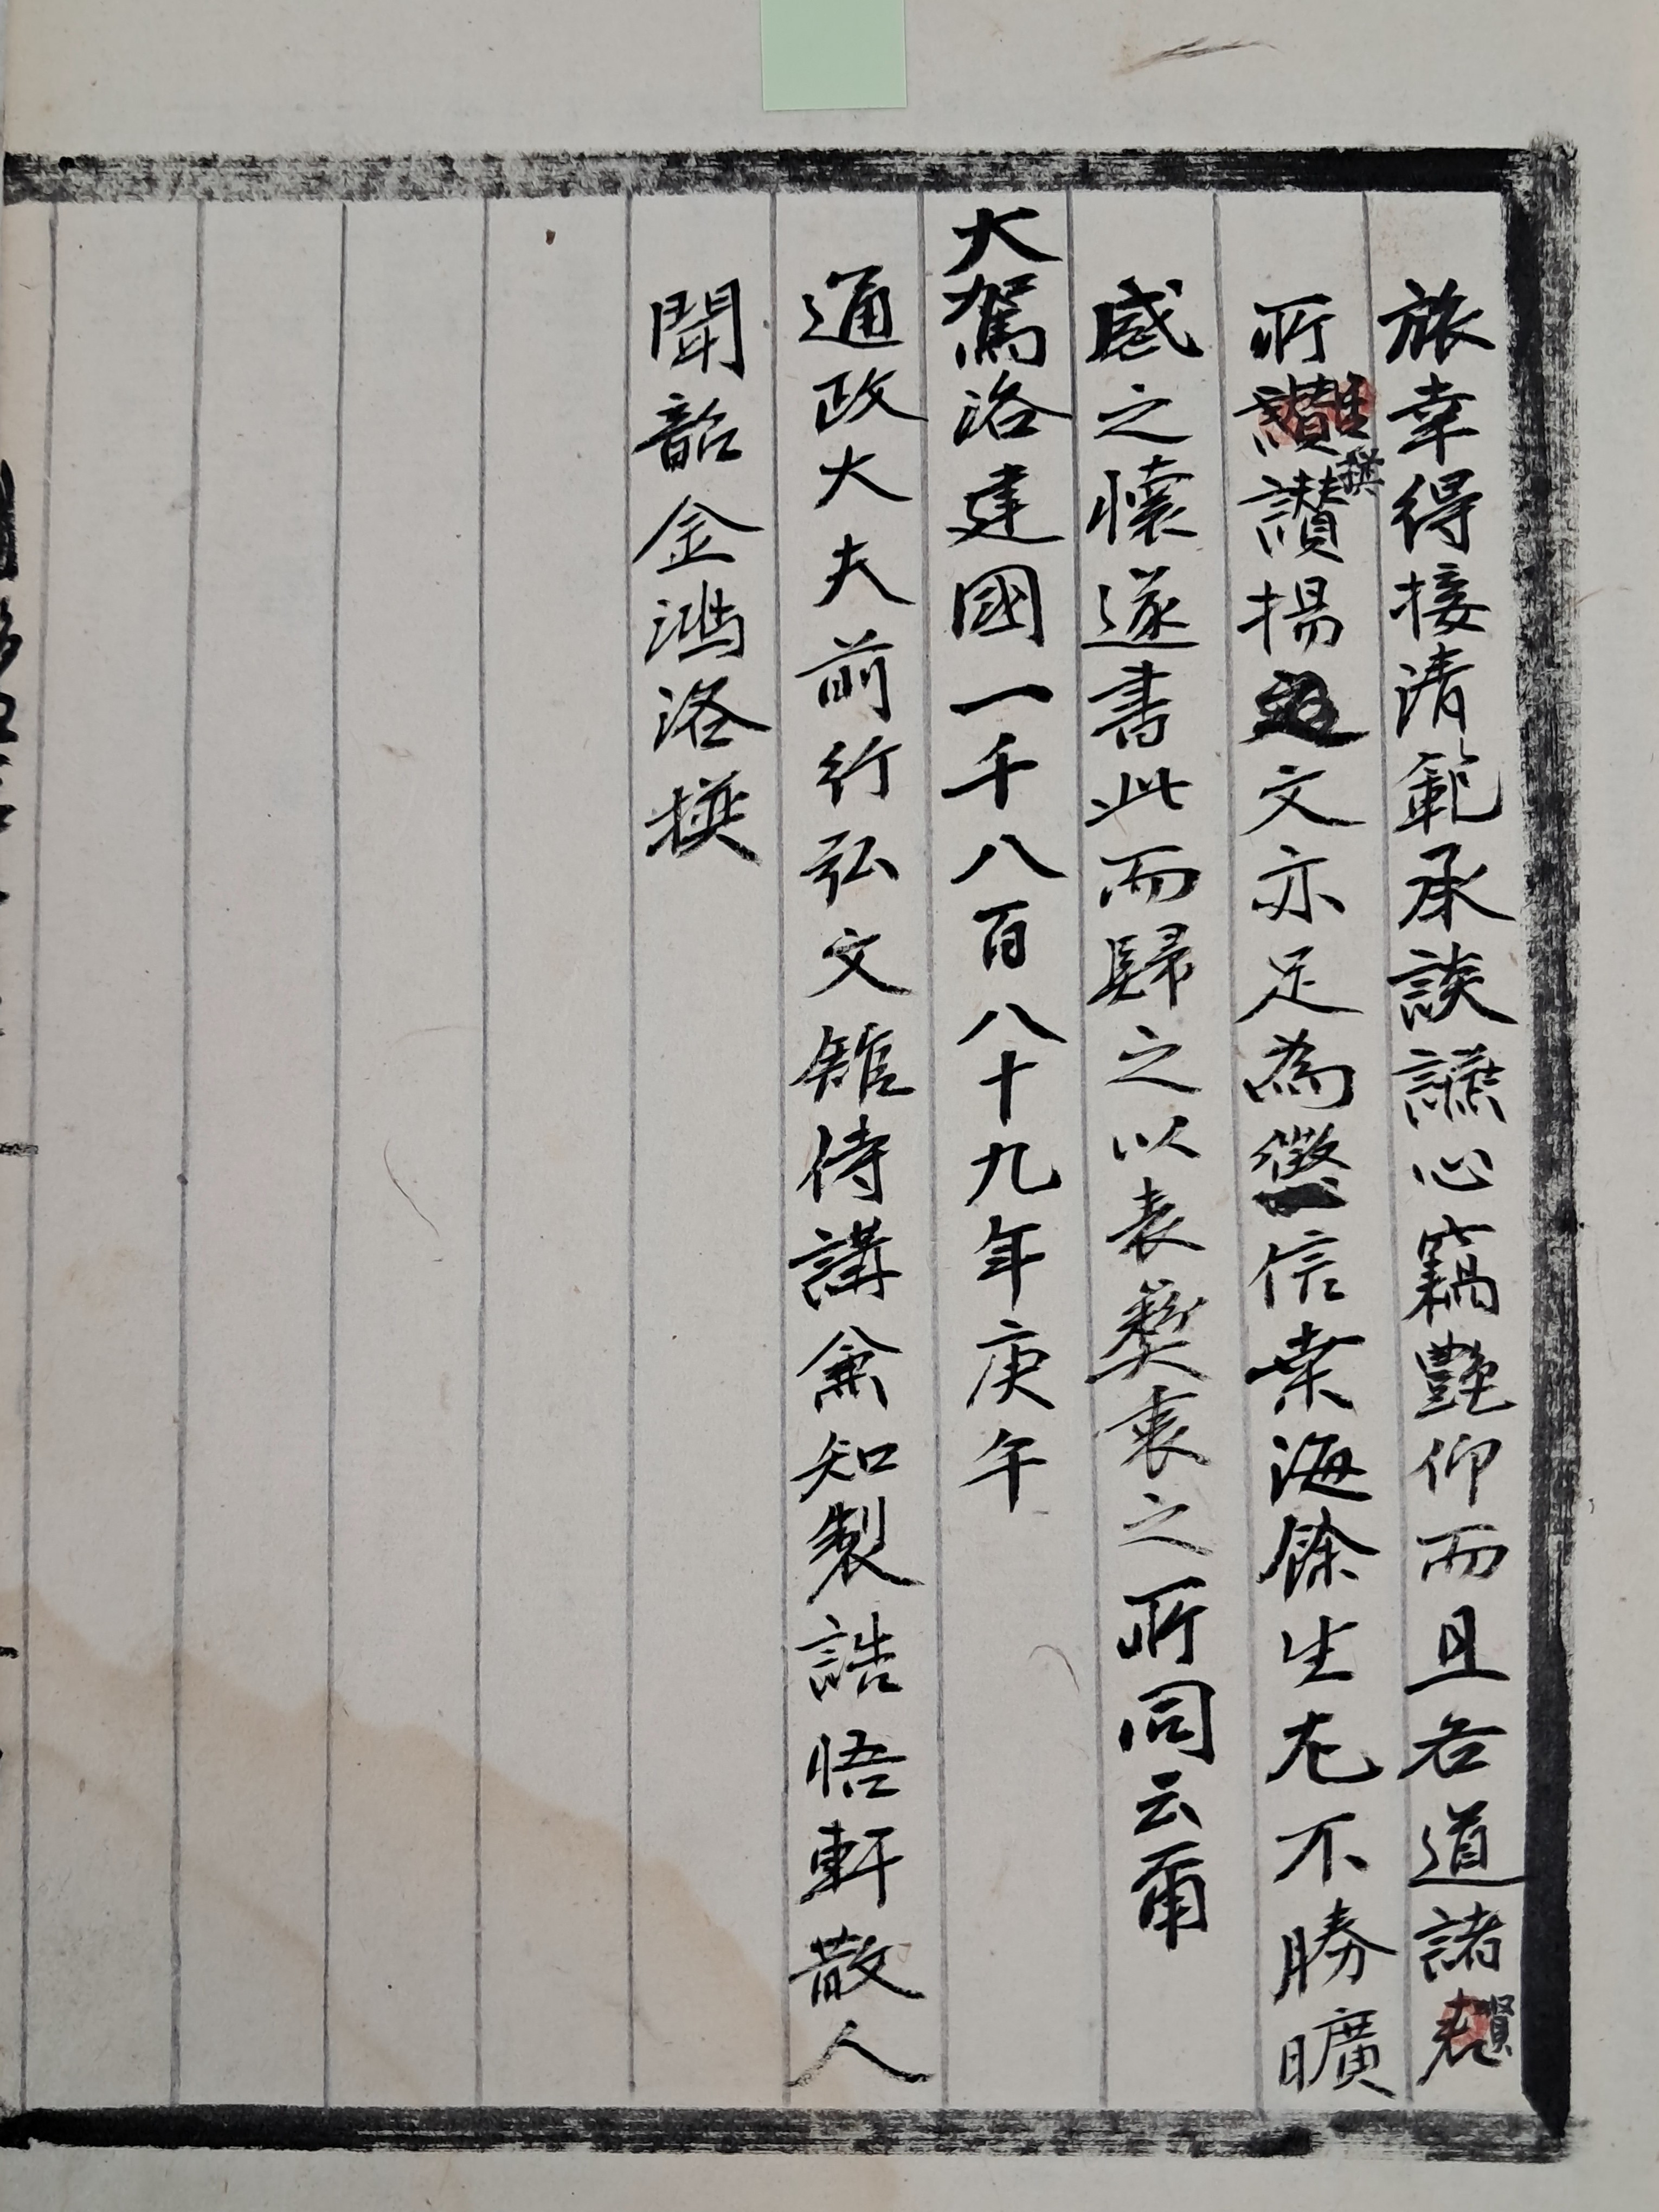 旅幸得接清範承談讌心竊艷仰而且右道諸老賢
所讚撰讚揚文亦足為徵信業海餘生尤不勝曠
感之懷遂書此而歸之以表彝衷之所同云爾
大駕洛建國一千八百八十九年庚午
通政大夫前行弘文館侍講兼知製誥悟軒散人
聞韶金鴻洛撰